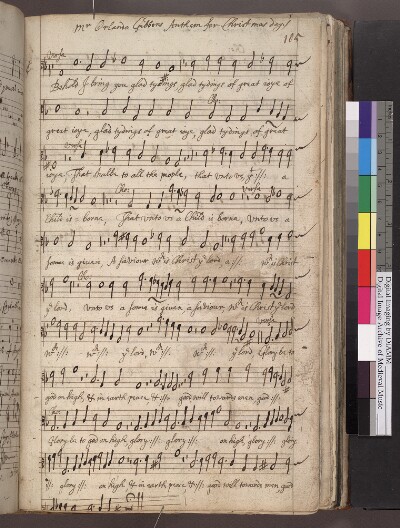 Mr Orlando Gibbons Anthem for Christmas day
105
verse
Behold I bring you glad tydings, glad tydings of great ioye of
Cho:
great ioye, glad tydings of great ioye, glad tydings of great
verse
ioye. That shalbe to all the people, that vnto vs, yt :||: a
Cho: verse
Child is borne, That vnto vs a Child is borne, vnto vs a
sonne is given, A saviour wch is Christ ye lord a :||: wch is Christ
Cho:
ye lord, vnto vs a sonne is given a saviour, wch is Christ ye lord
wch :||: wch :||: ye lord, wch :||: wch :||: ye lord, Glory be to
god on high, & in earth peace & :||: good will towards men good :||:
Glory be to god on high, glory :||: glory :||: on high, glory :||: glory
:||: glory :||: on high & in earth peace & :||: good will towards men, good
Digital Imaging by DIAMM
Digital Image Archive of Medieval Music